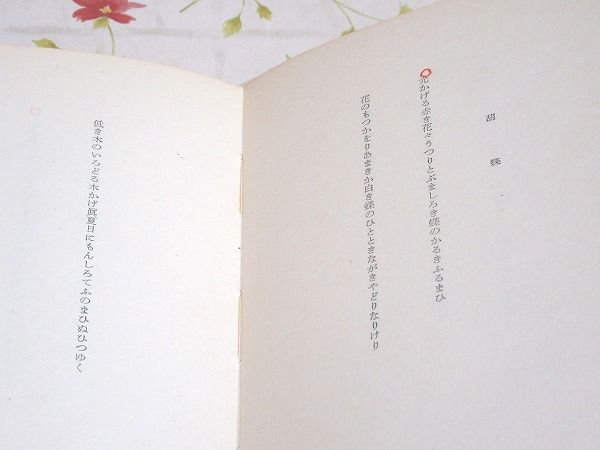 胡蝶
光かげる赤き花々うつりとぶましろき蝶のかるきふるまひ
花のもつかをりあまきか白き蝶のひとときながきやどりなりけり
低き木のいろどる木かげ眞夏日にもんしろてふのまひぬひつゆく